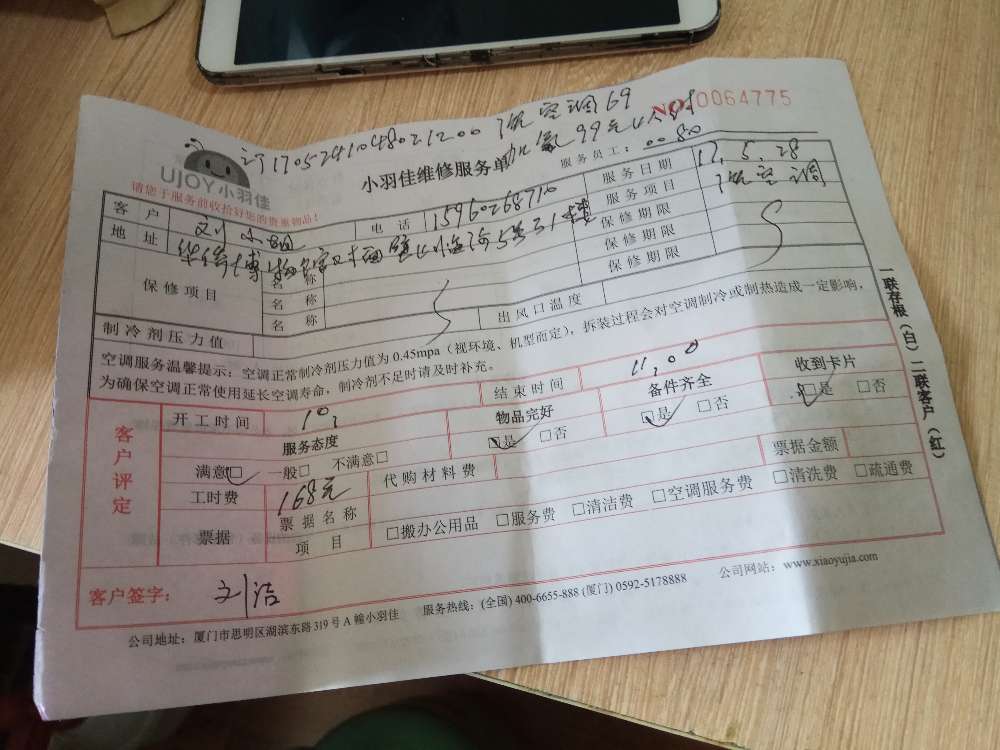 NO.0064775
订170524104802 1200 洗空调69
加氟99元
UJOY小羽佳
小羽佳维修服务单
服务员工: 0080
请您于服务前收拾好您的贵重物品!
客户 刘小姐 电话 服务日期 17.5.28
地址 服务项目 洗空调
保修项目 名称 保修期限
名称 保修期限
名称 保修期限
制冷剂压力值 出风口温度
空调服务温馨提示:空调正常制冷剂压力值为 0.45mpa(视环境、机型而定),拆装过程会对空调制冷或制热造成一定影响,
为确保空调正常使用延长空调寿命,制冷剂不足时请及时补充。
客户评定
开工时间 10: 结束时间 11:00
服务态度 物品完好 备件齐全 收到卡片
满意□ 一般□ 不满意□ □是 □否 □是 □否 □是 □否
工时费 168元 代购材料费 票据金额
票据 票据名称 □搬办公用品 □服务费 □清洁费 □空调服务费 □清洗费 □疏通费
项目
客户签字: 刘洁
公司地址:厦门市思明区湖滨东路319号A幢小羽佳 服务热线:(全国) 400-6655-888 (厦门) 0592-5178888 公司网站:www.xiaoyujia.com
一联存根(白)二联客户(红)